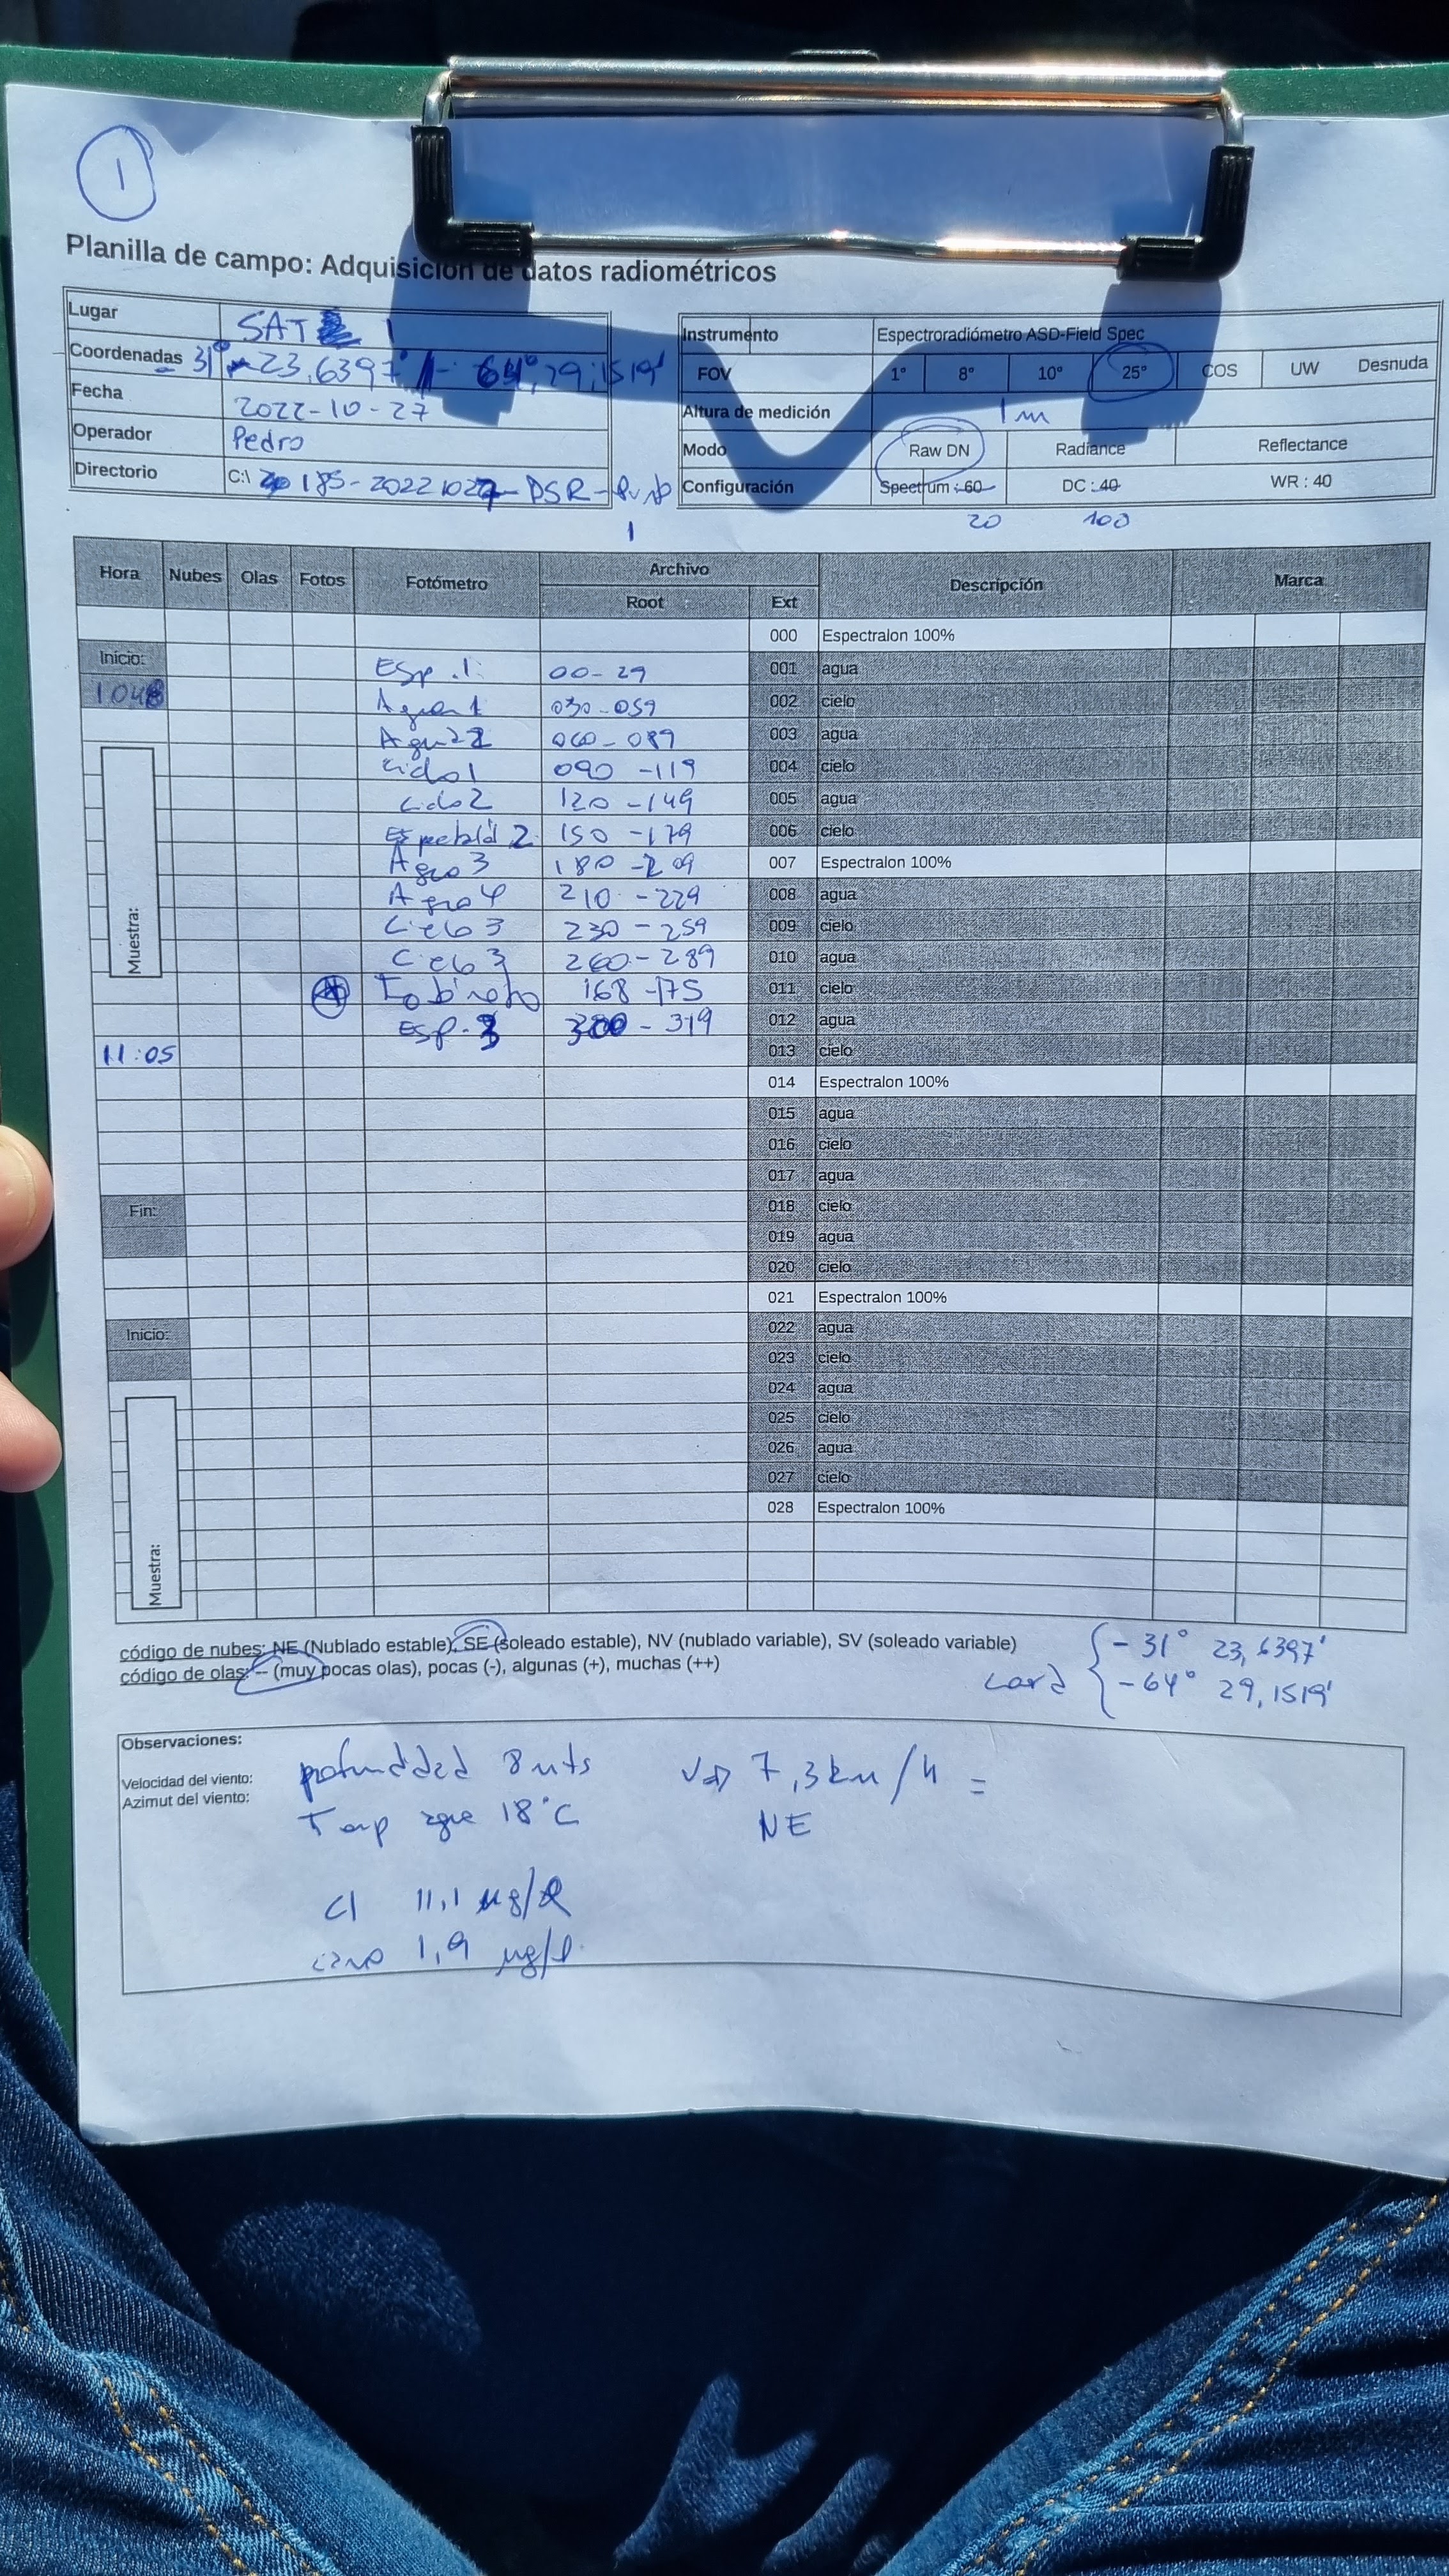 1
Planilla de campo: Adquisición de datos radiométricos
Lugar SAT 1
Coordenadas 31° -23,6397' / - 64°, 29,1519'
Fecha 2022-10-27
Operador Pedro
Directorio C:\ 185-20221027-DSR-
1
Instrumento Espectroradiómetro ASD-Field Spec
FOV 1° 8° 10° 25° COS UW Desnuda
Altura de medición 1 m
Modo Raw DN Radiance Reflectance
Configuración Spectrum : 60 DC : 40 WR : 40
20 100
Hora Nubes Olas Fotos Fotómetro Archivo Descripción Marca
Root Ext
000 Espectralon 100%
Inicio: Esp. 1: 00-29 001 agua
1048 Agua 1 030-059 002 cielo
Agua 2 060-089 003 agua
Cielo 1 090-119 004 cielo
Cielo 2 120-149 005 agua
2 150-179 006 cielo
Agua 3 180-209 007 Espectralon 100%
Agua 4 210-229 008 agua
Cielo 3 230-259 009 cielo
Cielo 3 260-289 010 agua
168-175 011 cielo
Esp. 3 300-319 012 agua
11:05 013 cielo
014 Espectralon 100%
015 agua
016 cielo
017 agua
Fin: 018 cielo
019 agua
020 cielo
021 Espectralon 100%
Inicio: 022 agua
023 cielo
024 agua
025 cielo
026 agua
027 cielo
028 Espectralon 100%
Muestra:
Muestra:
código de nubes: NE (Nublado estable), SE (soleado estable), NV (nublado variable), SV (soleado variable)
código de olas: -- (muy pocas olas), pocas (-), algunas (+), muchas (++)
- 31° 23,6397'
- 64° 29,1519'
Observaciones:
Velocidad del viento:
Azimut del viento:
profundidad 8 mts 7,3 km/h =
Temp agua 18°C NE
Cl 11,1 µg/l
1,9 µg/l